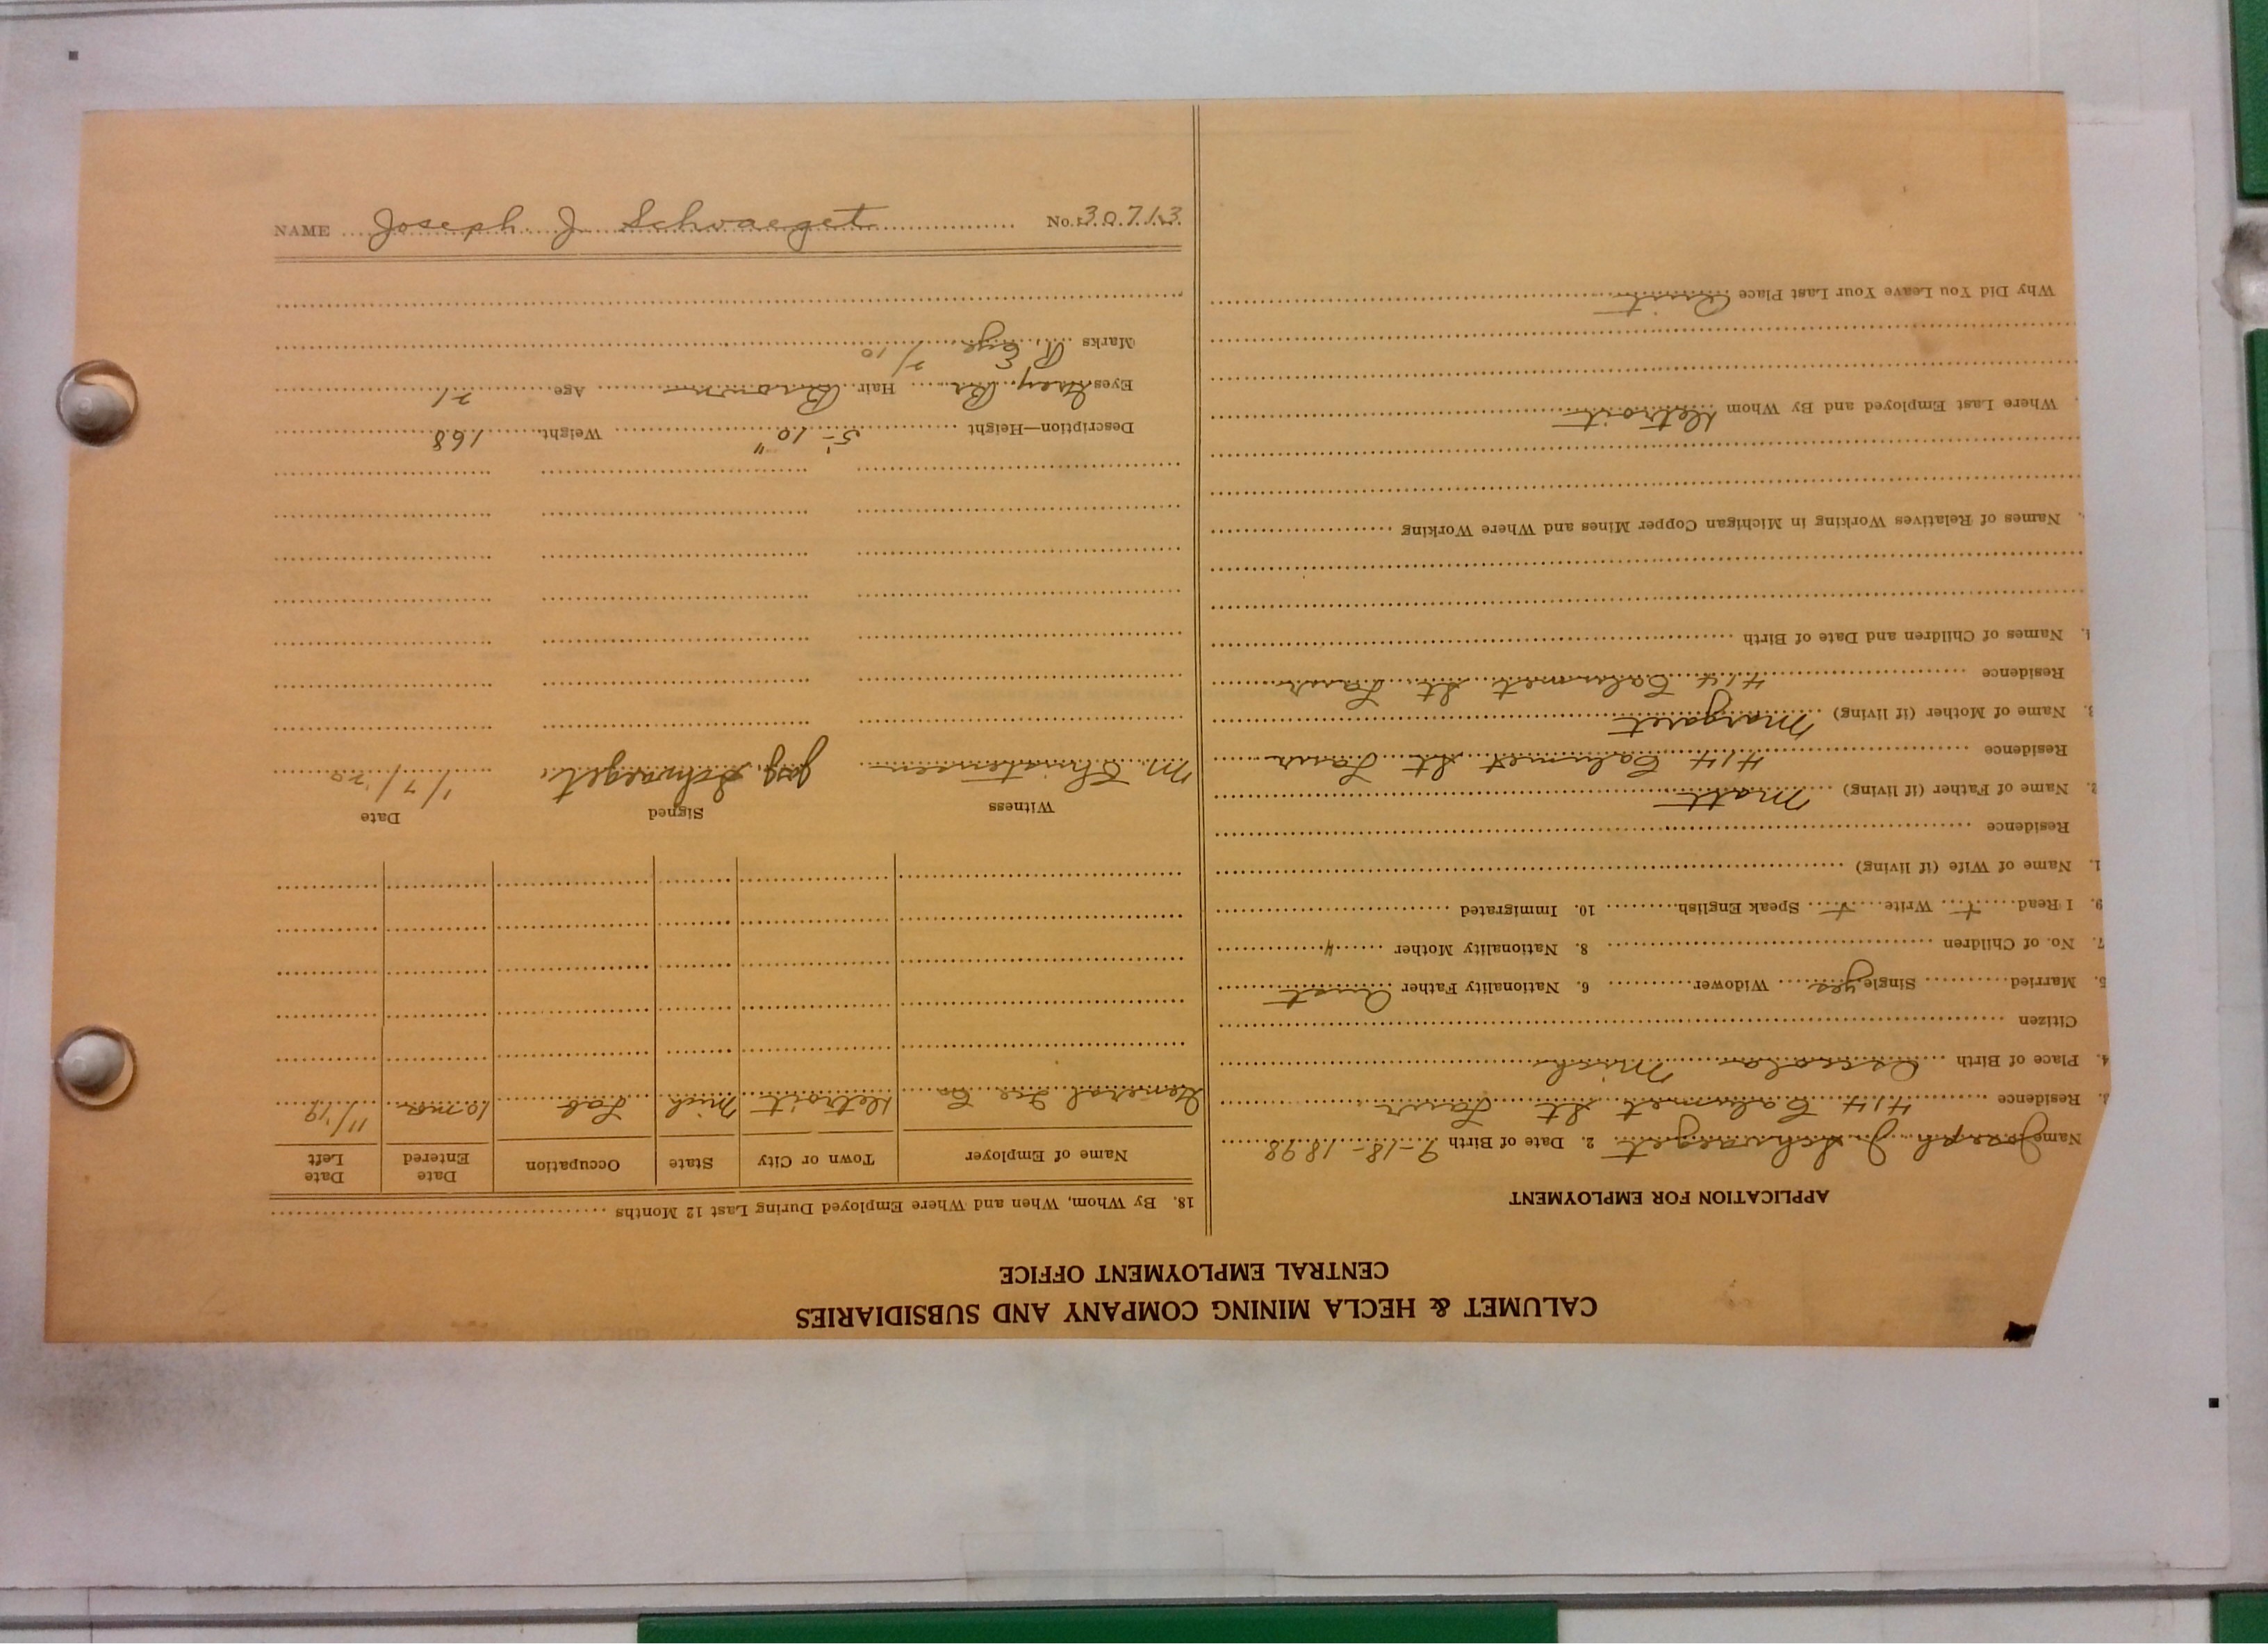 CALUMET & HECLA MINING COMPANY AND SUBSIDIARIES
CENTRAL EMPLOYMENT OFFICE
APPLICATION FOR EMPLOYMENT
Name Joseph J. Schwaeget 2. Date of Birth 9-18-1898
3. Residence 414 Calumet St Laur
4. Place of Birth Osceola Mich
Citizen
5. Married Single yes Widower 6. Nationality Father Aust
7. No. of Children 8. Nationality Mother "
9. I Read + Write + Speak English 10. Immigrated
1. Name of Wife (if living)
Residence
2. Name of Father (if living) Matt
Residence 414 Calumet St Laur
3. Name of Mother (if living) Margaret
Residence 414 Calumet St Laur
4. Names of Children and Date of Birth
Names of Relatives Working in Michigan Copper Mines and Where Working
Where Last Employed and By Whom Detroit
Why Did You Leave Your Last Place Quit
18. By Whom, When and Where Employed During Last 12 Months
Name of Employer Town or City State Occupation Date Entered Date Left
General Ice Co Detroit Mich Lab 10 mos 11/'19
Witness Signed Date
M. Christensen Jos J. Schwaeget. 1/7/20
Description—Height 5'-10" Weight 168
Eyes Grey Br Hair Brown Age 21
Marks R. Eye 2/10
NAME Joseph J Schwaeget No. 30713